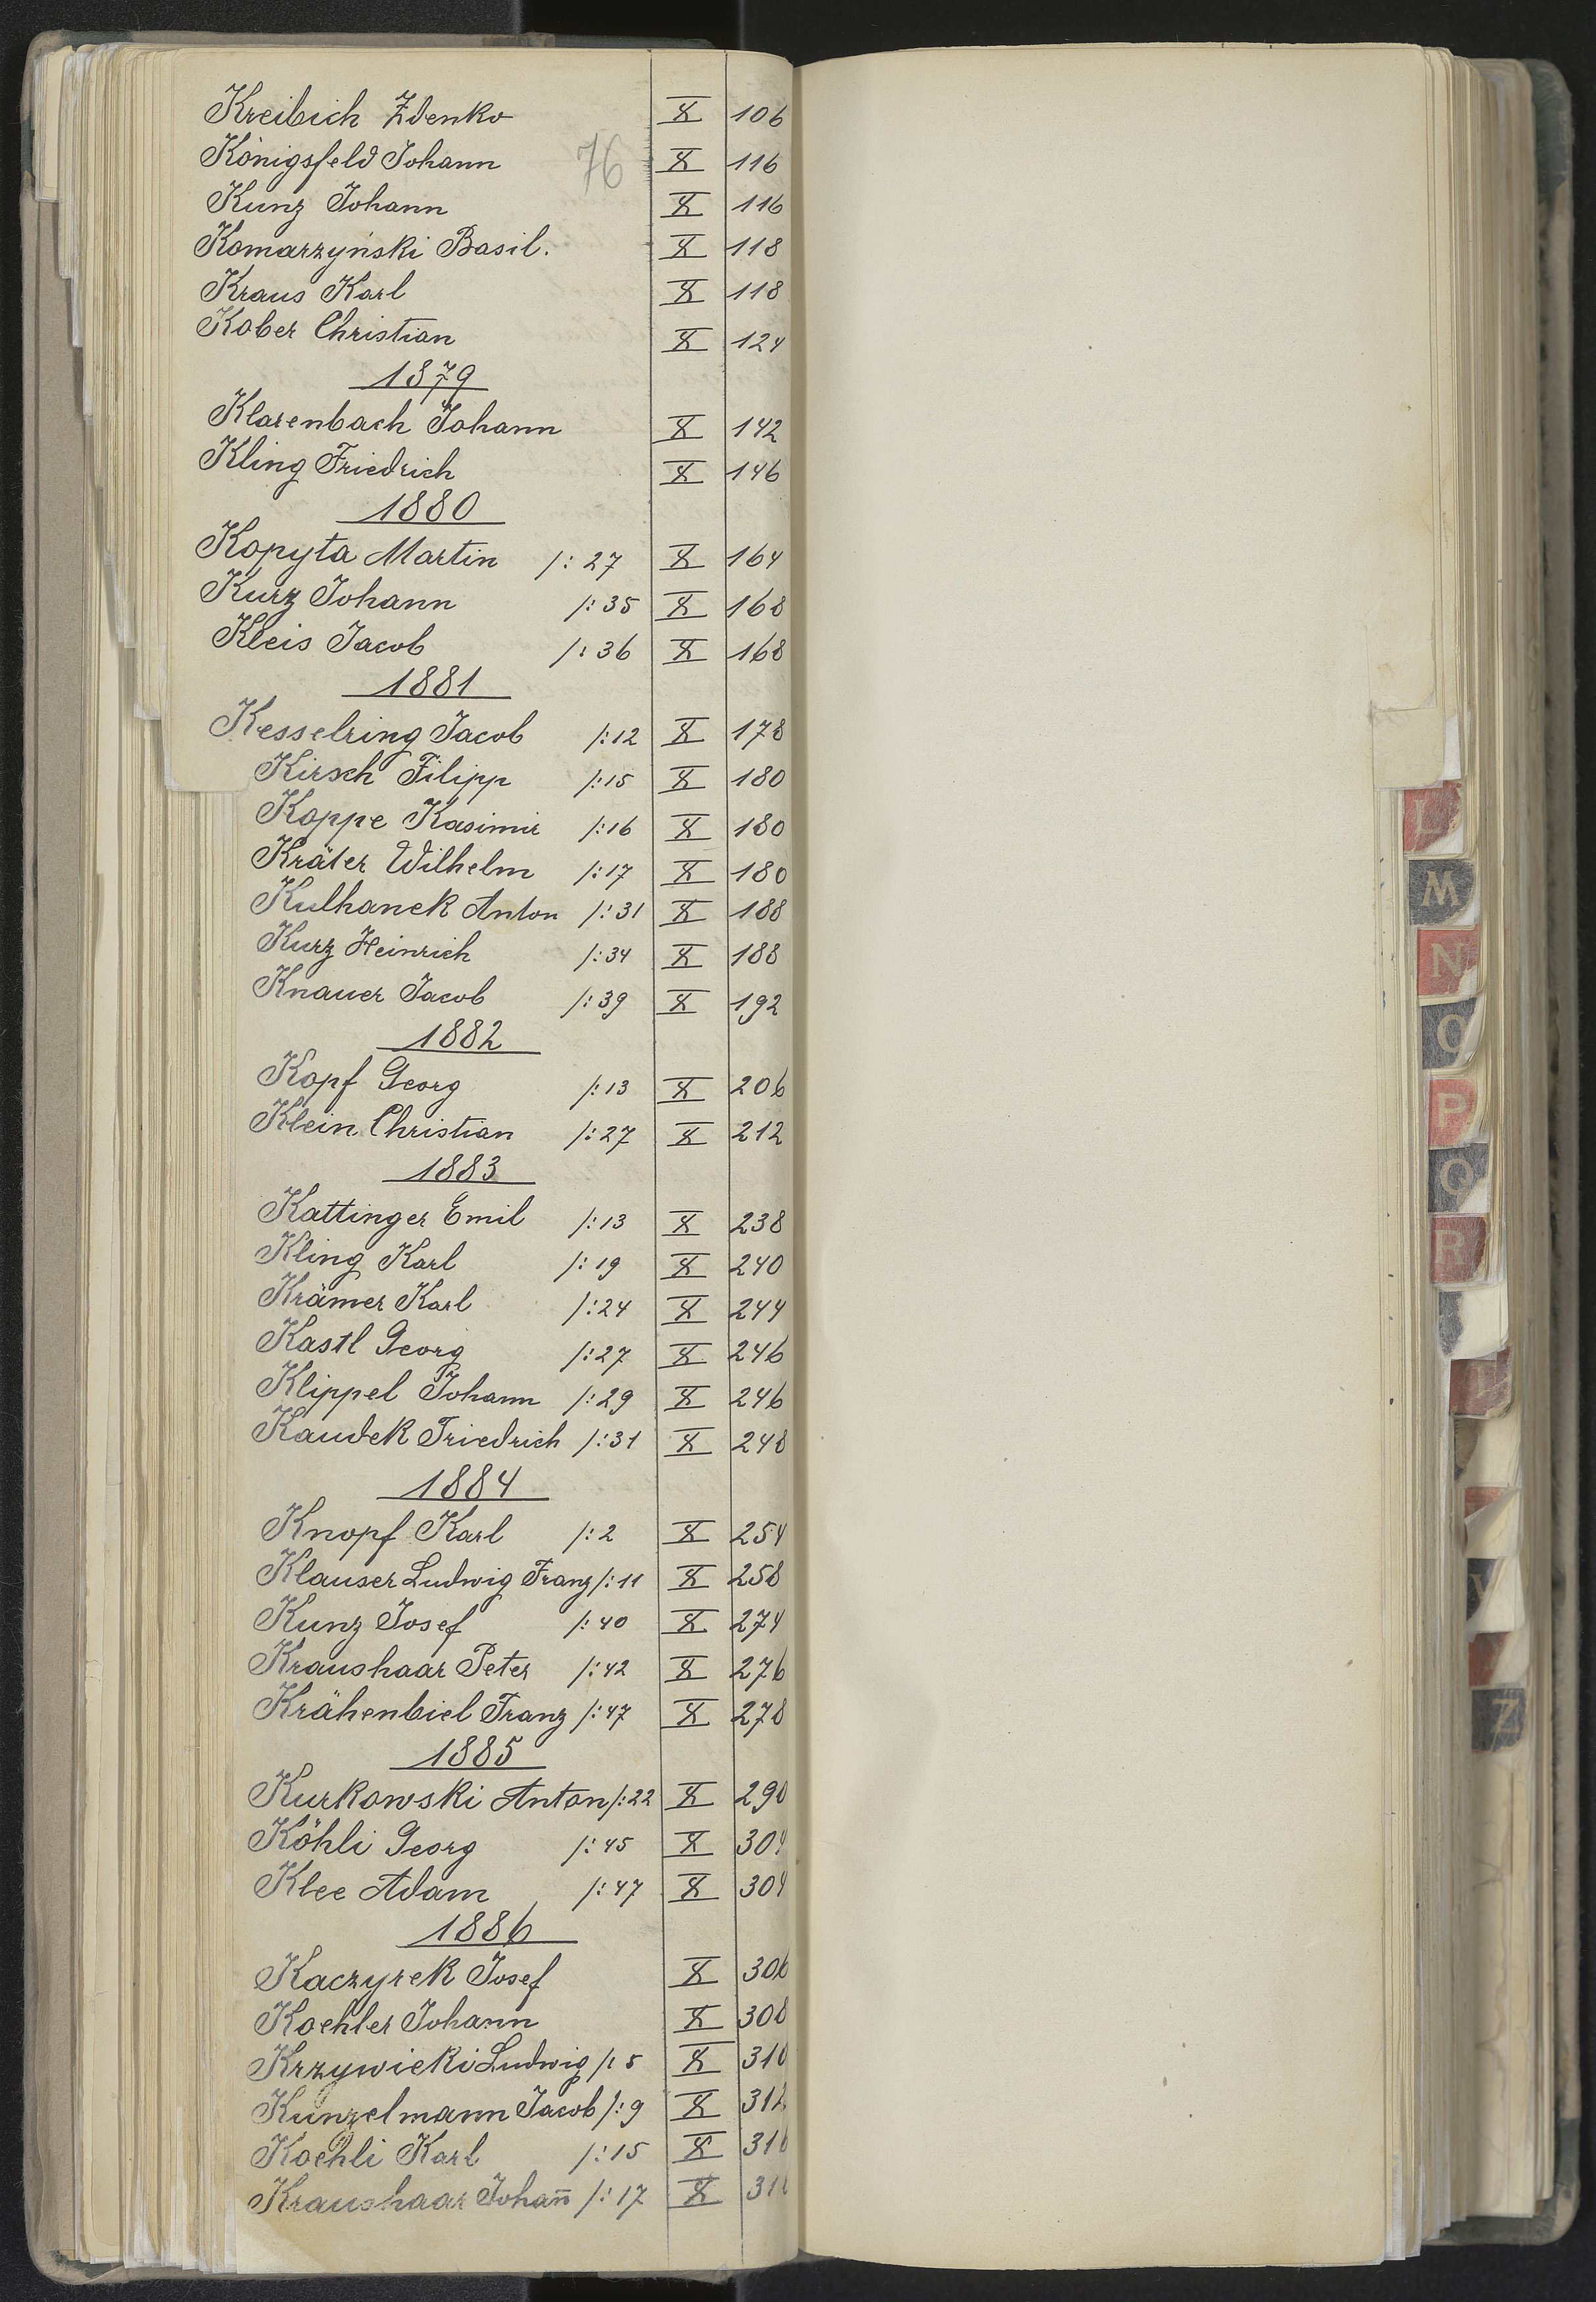 Kreibich Zdenko X 106
76
Königsfeld Johann X 116
Kunz Johann X 116
Komarzyński Basil. X 118
Kraus Karl X 118
Kober Christian X 124
1879
Klarenbach Johann X 142
Kling Friedrich X 146
1880
Kopyta Martin /: 27 X 164
Kurz Johann /: 35 X 168
Kleis Jacob /: 36 X 168
1881
Kesselring Jacob /: 12 X 178
Kirsch Filipp /: 15 X 180
Koppe Kasimir /: 16 X 180
Kräter Wilhelm /: 17 X 180
Kulhanek Anton /: 31 X 188
Kurz Heinrich /: 34 X 188
Knauer Jacob /: 39 X 192
1882
Kopf Georg /: 13 X 206
Klein Christian /: 27 X 212
1883
Kattinger Emil /: 13 X 238
Kling Karl /: 19 X 240
Krämer Karl /: 24 X 244
Kastl Georg /: 27 X 246
Klippel Johann /: 29 X 246
Kaudek Friedrich /: 31 X 248
1884
Knopf Karl /: 2 X 254
Klauser Ludwig Franz /: 11 X 258
Kunz Josef /: 40 X 274
Kraushaar Peter /: 42 X 276
Krähenbiel Franz /: 47 X 278
1885
Kurkowski Anton /: 22 X 290
Köhli Georg /: 45 X 304
Klee Adam /: 47 X 304
1886
Kaczyrek Josef X 306
Koehler Johann X 308
Krzywicki Ludwig /: 5 X 310
Kunzelmann Jacob /: 9 X 312
Koehli Karl /: 15 X
Kraushaar Johan̄ /: 17 X
L
M
N
O
P
Q
R
Z